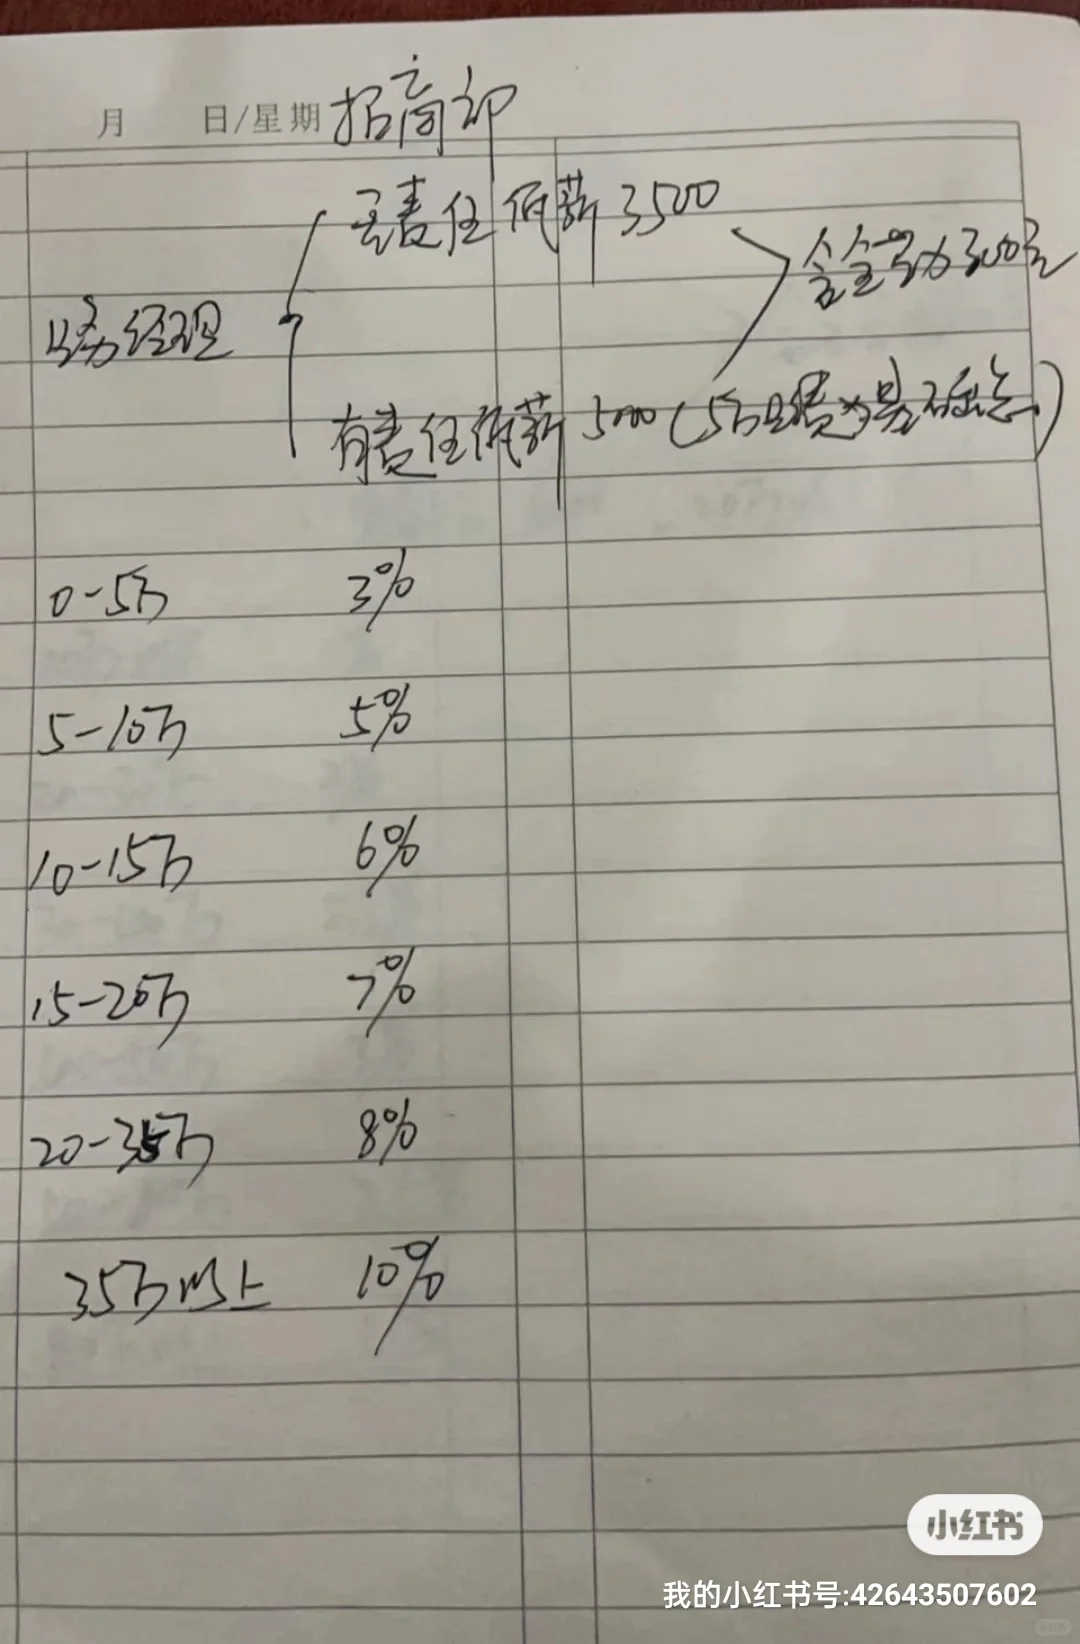 月 日/星期 招商部
无责任低薪 3500
含全勤 300元
业务经理
有责任低薪 5000 (5万
0-5万 3%
5-10万 5%
10-15万 6%
15-20万 7%
20-35万 8%
35万以上 10%
小红书
我的小红书号:42643507602